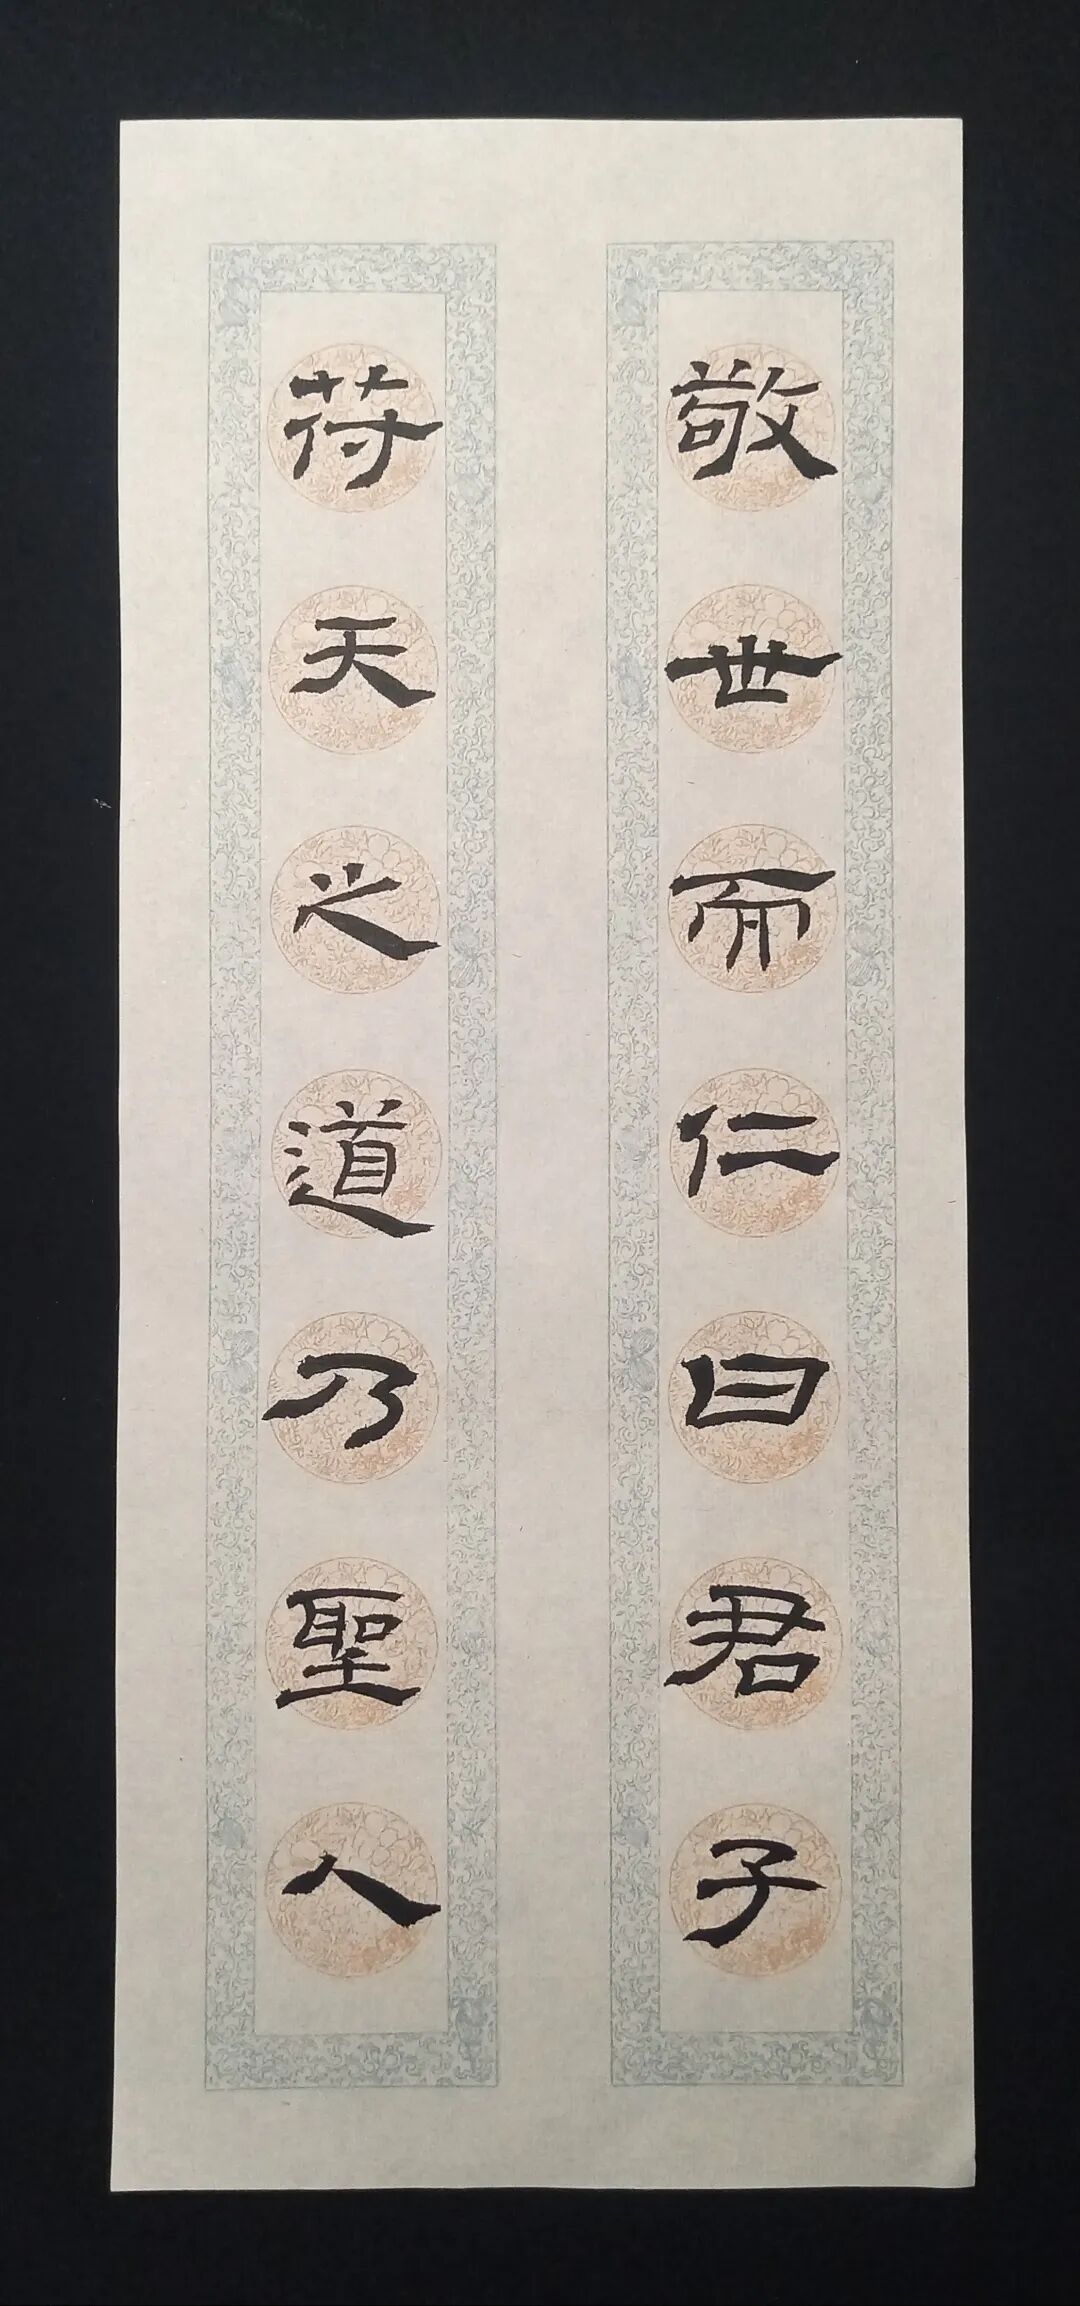 敬世而仁曰君子
苻天之道乃聖人